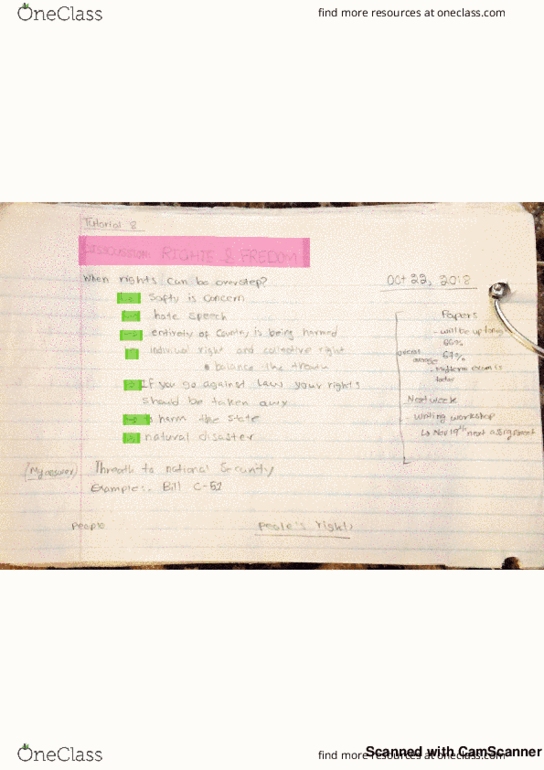 OneClass
find more resources at oneclass.com
Tutorial 8
DISCUSSION RIGHTS & FREEDOM
When rights can be overstep?
Oct 22, 2018
Safty is concern
hate speech
entirely of Country is being harmed
individual right and collective right
balance the
If you go against law your rights
should be taken away
harm the state
natural disaster
(My answer) Threath to national Security
Examples. Bill C-51
People
Peole's rights
Papers
- will be up
66%
overall average 67%
- midterm exam is
later
Next week
- writing workshop
↳ Nov 19th next assignment
Scanned with CamScanner
OneClass
find more resources at oneclass.com